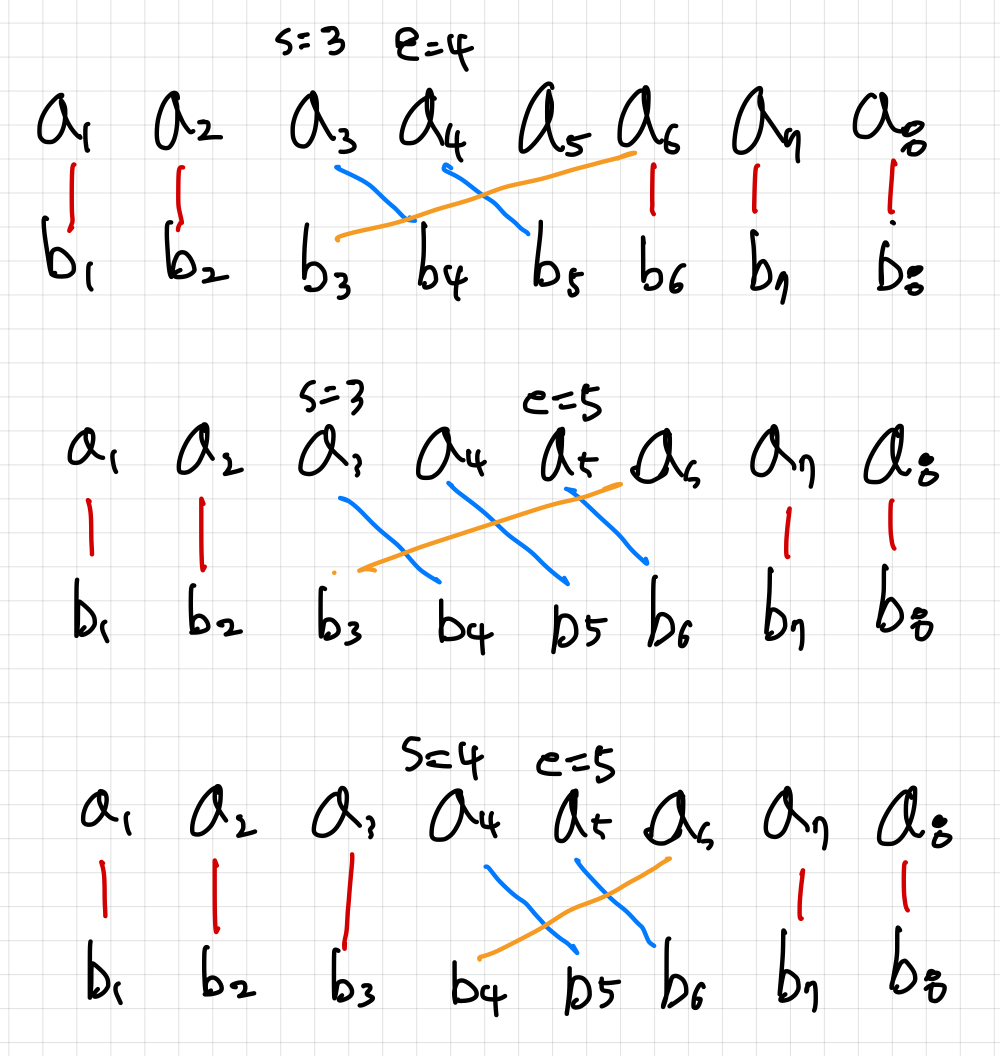 s=3 e=4
a₁ a₂ a₃ a₄ a₅ a₆ a₇ a₈
b₁ b₂ b₃ b₄ b₅ b₆ b₇ b₈
s=3 e=5
a₁ a₂ a₃ a₄ a₅ a₆ a₇ a₈
b₁ b₂ b₃ b₄ b₅ b₆ b₇ b₈
s=4 e=5
a₁ a₂ a₃ a₄ a₅ a₆ a₇ a₈
b₁ b₂ b₃ b₄ b₅ b₆ b₇ b₈